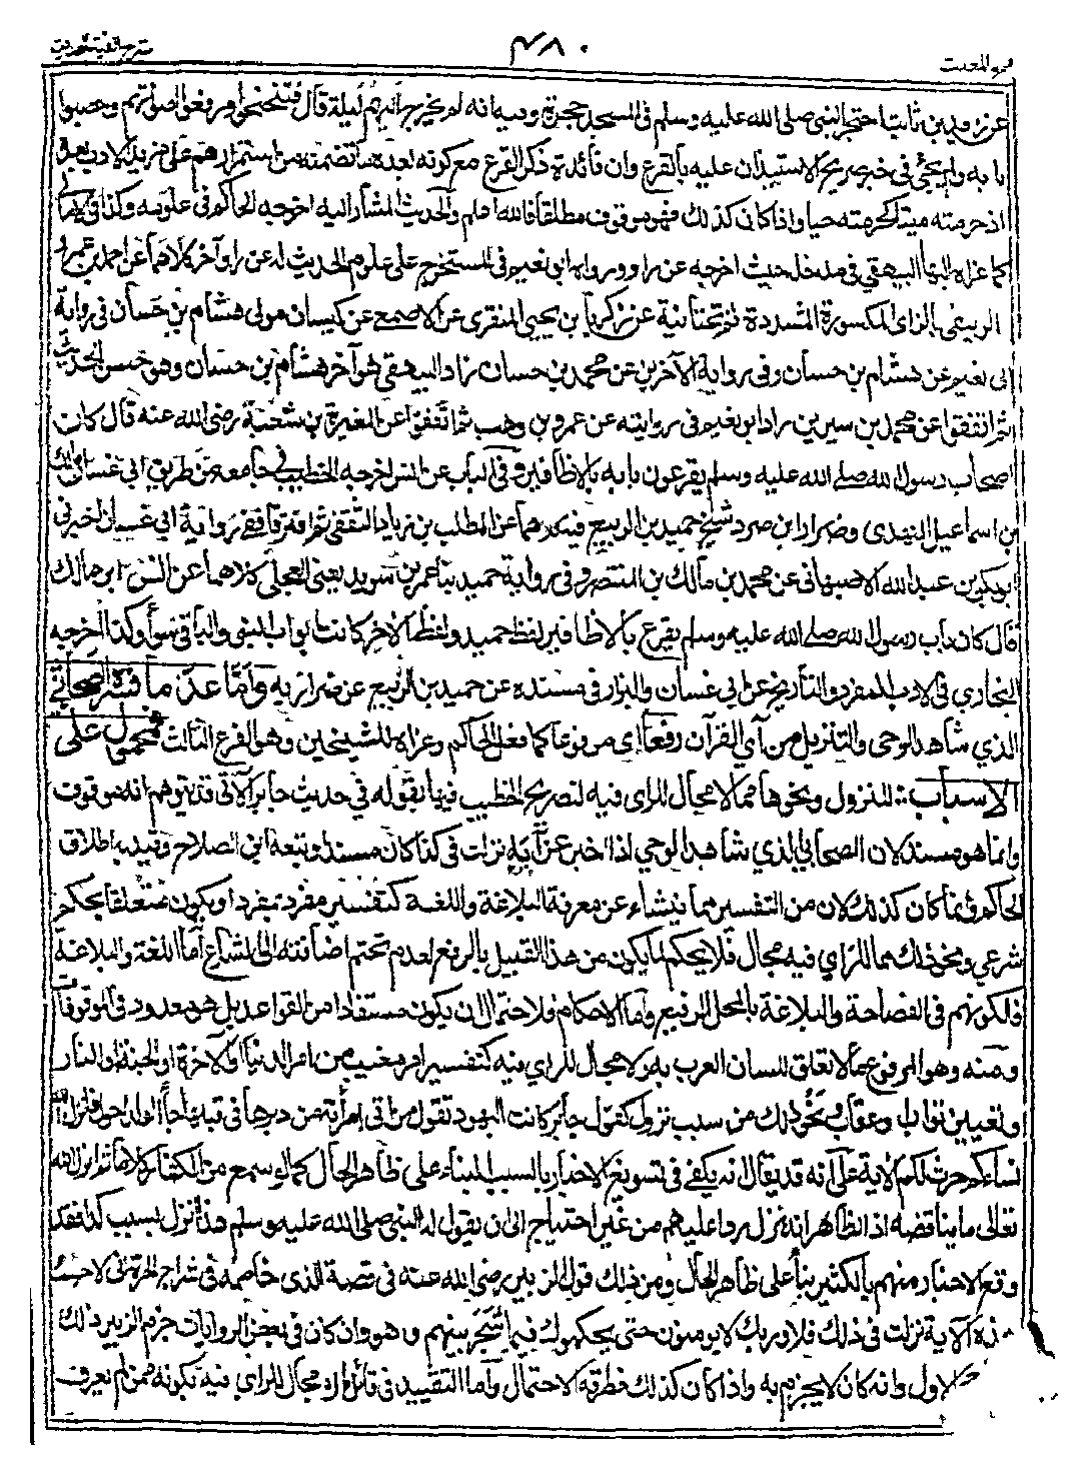 شرح الفية الحديث
٤٨٠
فتح المغيث
عن زيد بن ثابت احتجر النبي صلى الله عليه وسلم في المسجد حجرة وفيه انه لم يخرج اليهم ليلة قال فتنحنحوا ورفعوا اصواتهم وحصبوا
بابه ولم يجئ في خبر صريح الاستيذان عليه بالقرع وان فائدة ذكر القرع مع كونه بعده ما تضمنته من استمرارهم على مزيد الادب بعده
اذ حرمته ميتا كحرمته حيا واذا كان كذلك فهو موقوف مطلقا فالله اعلم والحديث المشار اليه اخرجه الحاكم في علومه وكذا في
كما عزاه اليها البيهقي في مدخله حيث اخرجه عن راو ورواه ابو نعيم في المستخرج على علوم الحديث له عن راو آخر كلاهما عن احمد بن عمرو
الزيبقي بالزاى المكسورة المشددة ثم تحتانية عن زكريا بن يحيى المنقرى عن الاصمعي عن كيسان مولى هشام بن حسان في رواية
ابي نعيم عن هشام بن حسان وفي رواية الآخرين عن محمد بن حسان زاد البيهقي هو آخر هشام بن حسان وهو حسن الحديث
ثم اتفقوا عن محمد بن سيرين زاد ابو نعيم في روايته عن عمرو بن وهب ثم اتفقوا عن المغيرة بن شعبة رضى الله عنه قال كان
اصحاب رسول الله صلى الله عليه وسلم يقرعون بابه بالاظافير وفي الباب عن انس اخرجه الخطيب في جامعه من طريق ابي غسان مالك
بن اسماعيل النهدى وضرار ابن صرد شيخ حميد بن الربيع فيه كلاهما عن المطلب بن زياد الثقفي ثم افترقا ففي رواية ابي غسان اخبرني
ابو بكر بن عبد الله الاصبهاني عن محمد بن مالك بن المنتصر وفي رواية حميد ثنا عمر بن سويد يعني العجلي كلاهما عن انس ابن مالك
قال كان باب رسول الله صلى الله عليه وسلم يقرع بالاظافير لفظ حميد ولفظ الآخر كانت ابواب النبي والباقي سوأ وكذا اخرجه
البخاري في الادب المفرد والتاريخ عن ابي غسان والبزار في مسنده عن حميد بن الربيع عن ضرار به وأما عد ما فسره الصحابي
الذي شاهد الوحي والتنزيل من آي القرآن رفعا اى مرفوعا كما فعل الحاكم وعزاه للشيخين وهو الفرع الثالث فمحمول على
الاسباب للنزول ونحوها مما لا مجال للراى فيه لتصريح الخطيب فيها بقوله في حديث جابر الآتي قد يتوهم انه موقوف
وانما هو مسند لان الصحابي الذي شاهد الوحي اذا اخبر عن آية نزلت في كذا كان مسندا وتبعه ابن الصلاح وقيد به اطلاق
الحاكم وانما كان كذلك لان من التفسير ما ينشاء عن معرفة البلاغة واللغة كتفسير مفرد بمفرد او يكون متعلقا بحكم
شرعي ونحو ذلك مما للرأي فيه مجال فلا يحكم لما يكون من هذا القبيل بالرفع لعدم تحتم اضافته الى الشارع أما اللغة والبلاغة
فلكونهم في الفصاحة والبلاغة بالمحل الرفيع وأما الاحكام فلاحتمال ان يكون مستفادا من القواعد بل هو معدود في الموقوفات
ومنه وهو المرفوع ما لا تعلق للسان العرب به ولا مجال للراي فيه كتفسير امر مغيب من امر الدنيا او الآخرة او الجنة او النار
وتعيين ثواب وعقاب ونحو ذلك من سبب نزول كقول جابر كانت اليهود تقول من اتى امرأته من دبرها في قبلها جاء الولد احول فانزل الله
نساءكم حرث لكم الآية على انه قد يقال انه يكفي في تسويغ الاخبار بالسبب البناء على ظاهر الحال كما لو سمع من الكفار كلاما ثم انزل الله
تعالى ما يناقضه اذ الظاهر انه نزل ردا عليهم من غير احتياج الى ان يقول له النبي صلى الله عليه وسلم هذا نزل بسبب كذا فقد
وقع الاخبار منهم بالكثير بناء على ظاهر الحال ومن ذلك قول الزبير رضى الله عنه في قصة الذى خاصمه في شراج الحرة اني لاحسب
هذه الآية نزلت في ذلك فلا وربك لا يومنون حتى يحكموك فيما شجر بينهم وهو وان كان في بعض الروايات جزم الزبير بذلك
الاول وانه كان لا يجزم به واذا كان كذلك فطرقه الاحتمال وأما التقييد في قائله بما لا مجال للراى فيه بكونه ممن لم يعرف